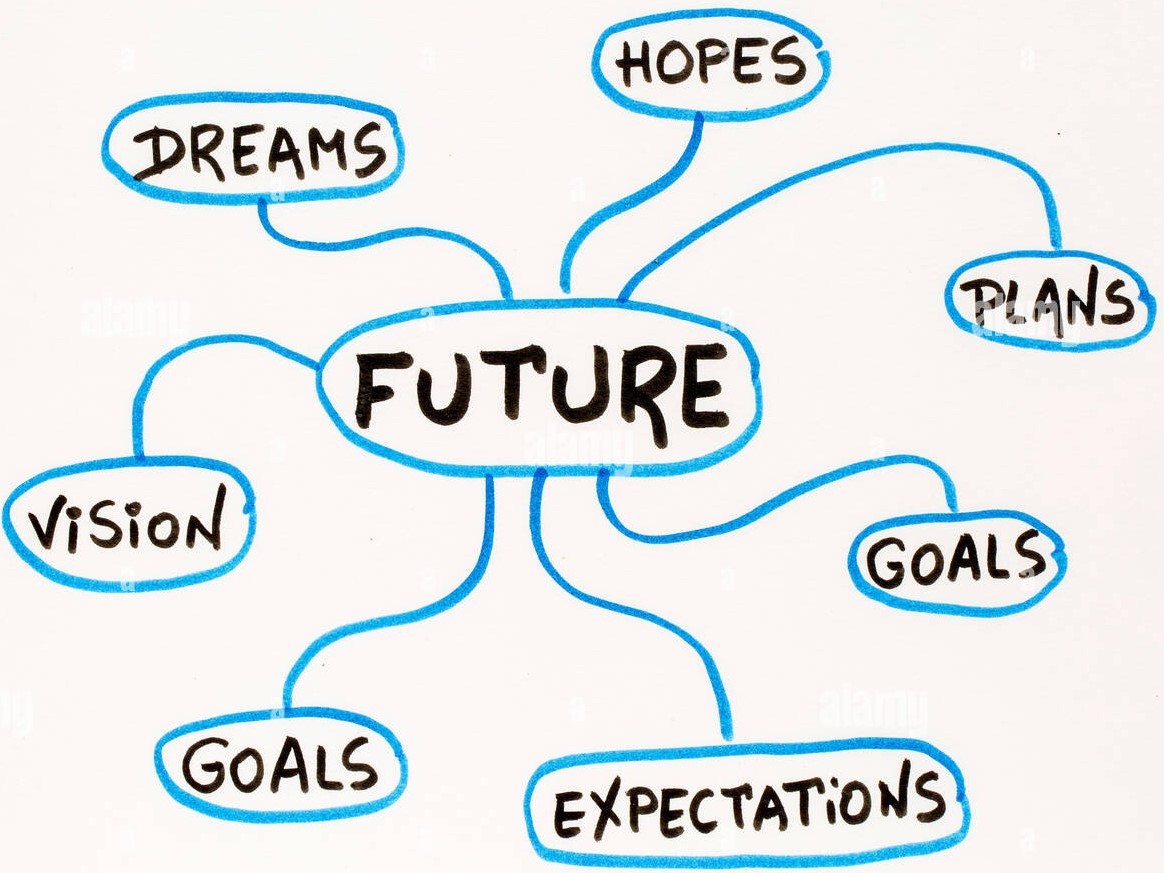 HOPES
DREAMS
PLANS
FUTURE
ViSiON
GOALS
GOALS
EXPECTATiONS
alamy
alamy
alamy
alamy
a
a
a
a
a
a
a
a
a
a
a
a
a
a